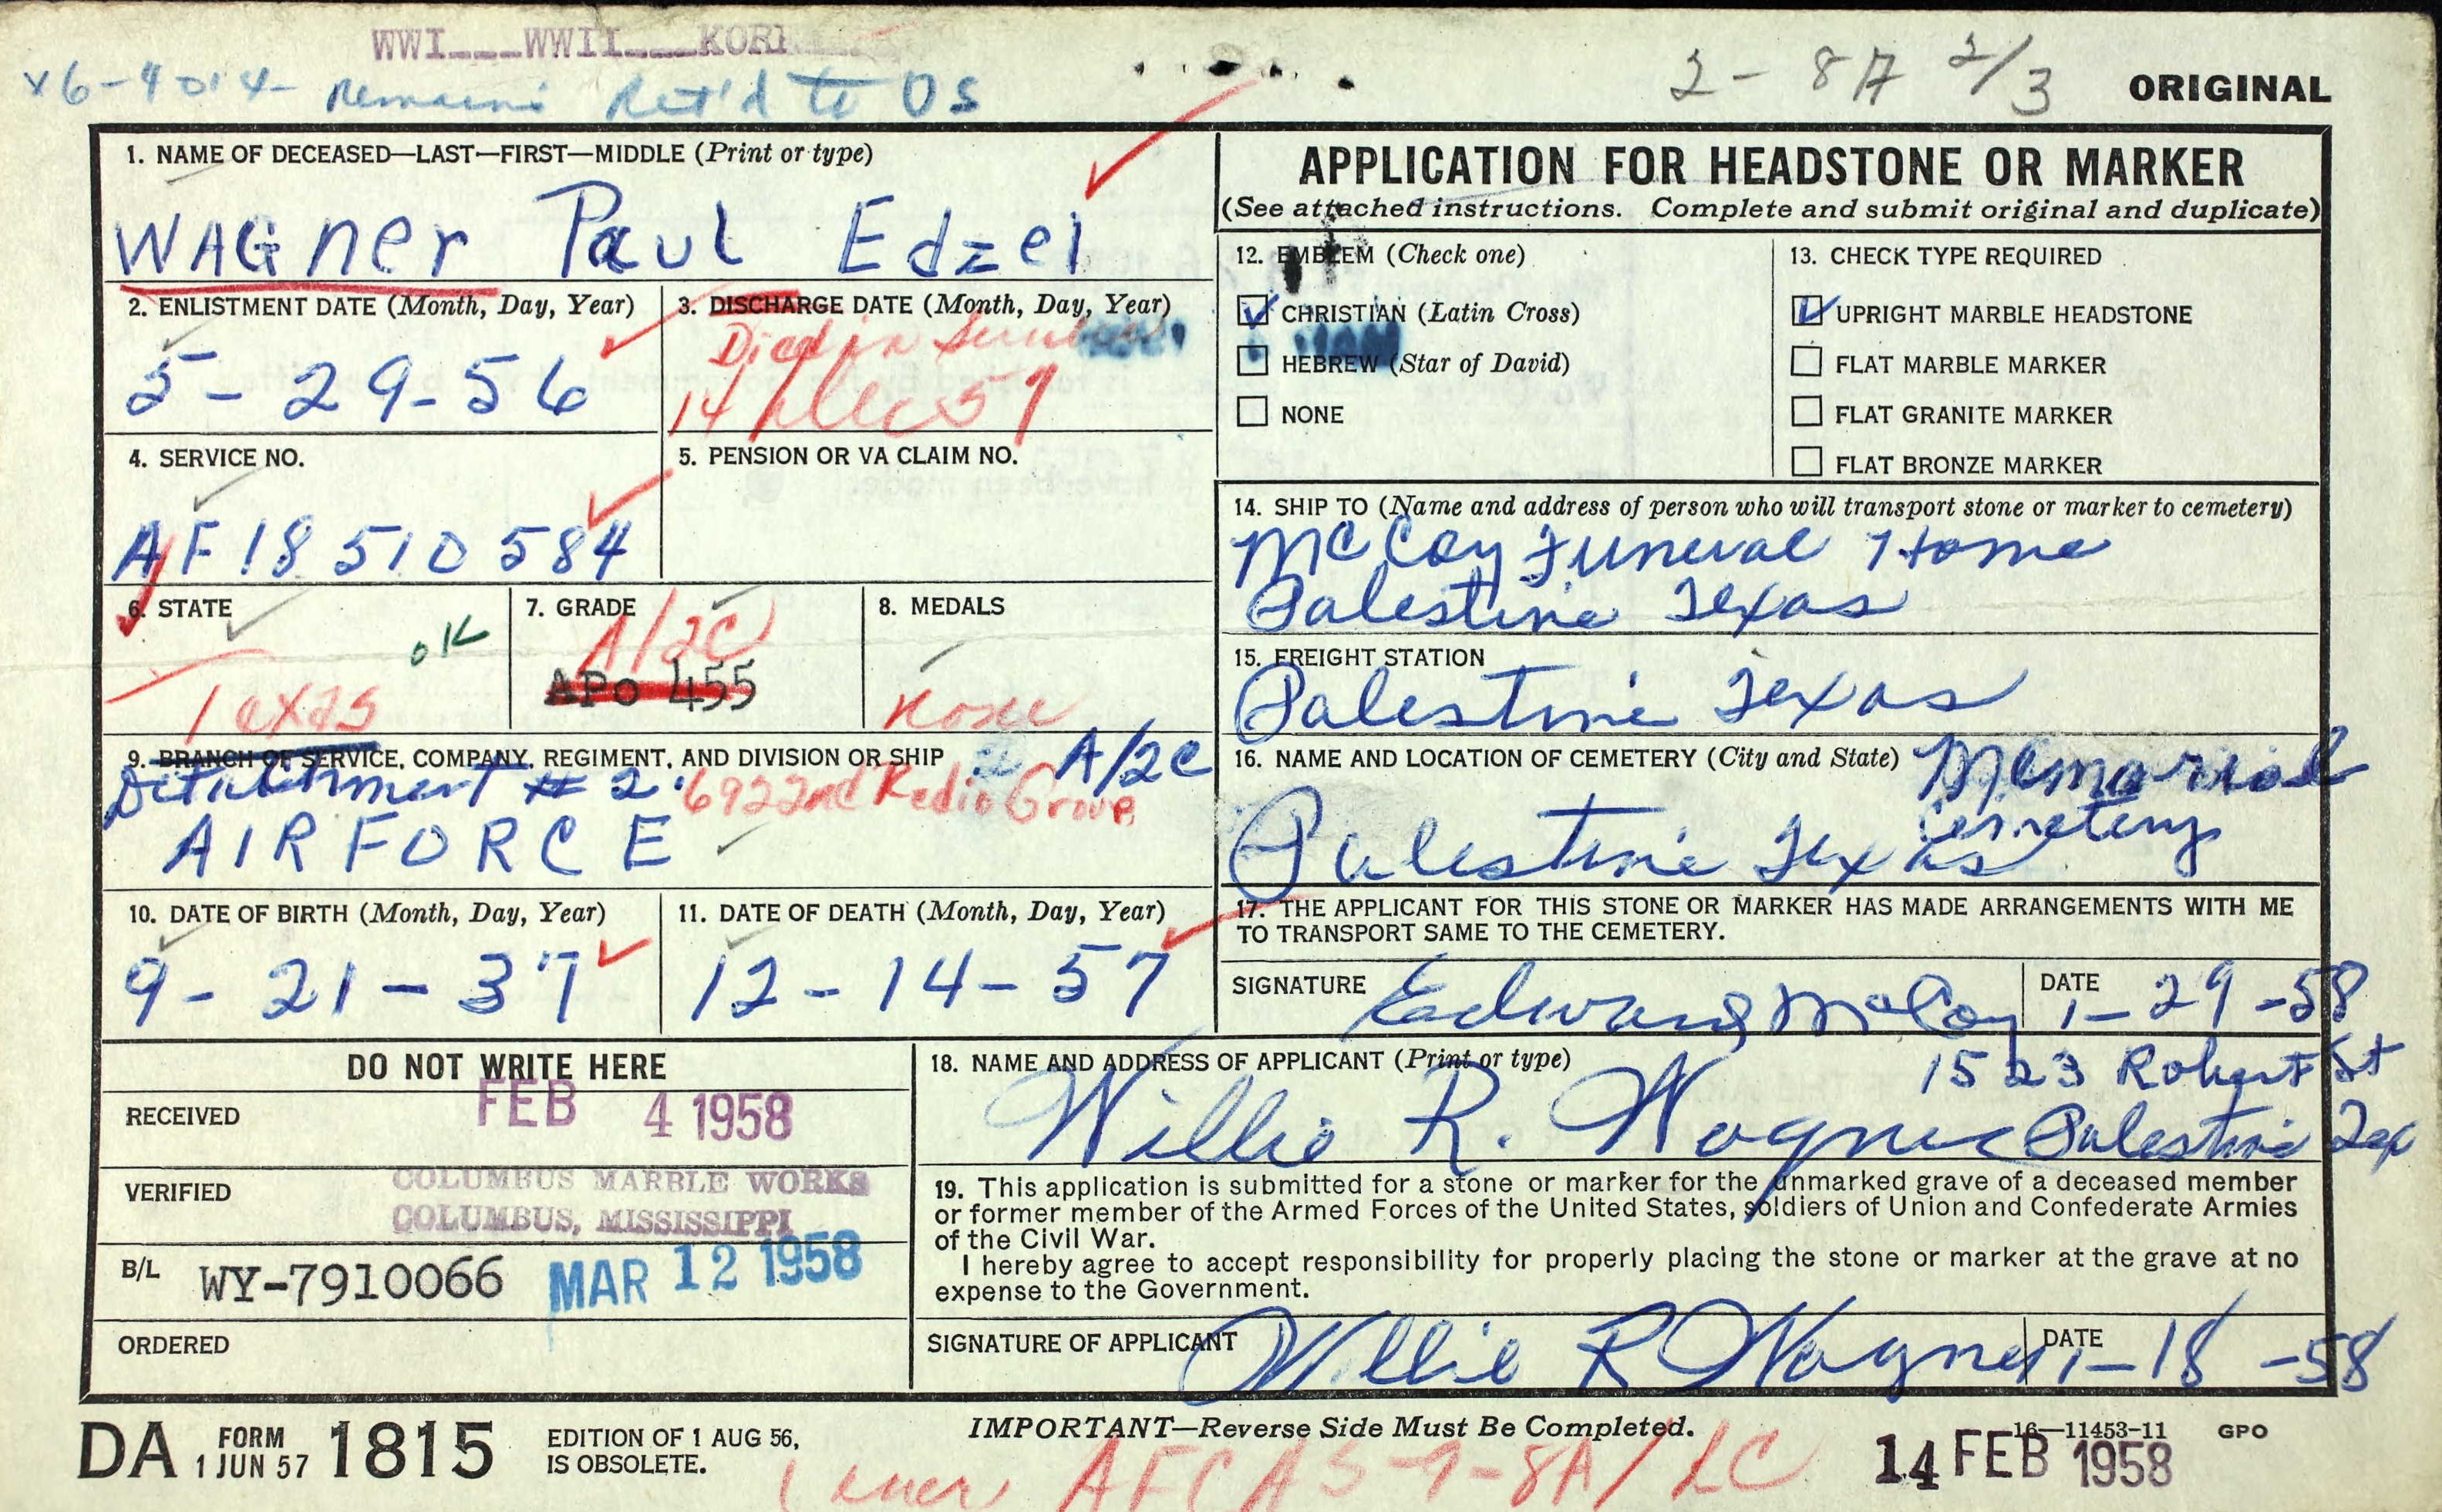 WWI___WWII___KOR
x6-4014- Remains Ret'd to US
2- 8A 2/3
ORIGINAL
1. NAME OF DECEASED—LAST—FIRST—MIDDLE (Print or type)
WAGner Paul Edzel
2. ENLISTMENT DATE (Month, Day, Year)
5-29-56
3. DISCHARGE DATE (Month, Day, Year)
Died in
14 Dec 57
4. SERVICE NO.
AF 18 510 584
5. PENSION OR VA CLAIM NO.
6. STATE
OK
Texas
7. GRADE
A/2C
APO 455
8. MEDALS
None
9. BRANCH OF SERVICE, COMPANY, REGIMENT, AND DIVISION OR SHIP
A/2C
Detachment # 2. 6922nd Radio Group
AIR FORCE
10. DATE OF BIRTH (Month, Day, Year)
9-21-37
11. DATE OF DEATH (Month, Day, Year)
12-14-57
APPLICATION FOR HEADSTONE OR MARKER
(See attached instructions. Complete and submit original and duplicate)
12. EMBLEM (Check one)
CHRISTIAN (Latin Cross)
HEBREW (Star of David)
NONE
13. CHECK TYPE REQUIRED
UPRIGHT MARBLE HEADSTONE
FLAT MARBLE MARKER
FLAT GRANITE MARKER
FLAT BRONZE MARKER
14. SHIP TO (Name and address of person who will transport stone or marker to cemetery)
McCoy Funeral Home
Palestine Texas
15. FREIGHT STATION
Palestine Texas
16. NAME AND LOCATION OF CEMETERY (City and State)
Memorial
Cemetery
Palestine Texas
17. THE APPLICANT FOR THIS STONE OR MARKER HAS MADE ARRANGEMENTS WITH ME
TO TRANSPORT SAME TO THE CEMETERY.
SIGNATURE Edward McCoy DATE 1-29-58
DO NOT WRITE HERE
RECEIVED FEB 4 1958
VERIFIED COLUMBUS MARBLE WORKS
COLUMBUS, MISSISSIPPI
B/L WY-7910066 MAR 12 1958
ORDERED
18. NAME AND ADDRESS OF APPLICANT (Print or type)
1523 Robert St
Willie R. Wagner Palestine Tex
19. This application is submitted for a stone or marker for the unmarked grave of a deceased member
or former member of the Armed Forces of the United States, soldiers of Union and Confederate Armies
of the Civil War.
I hereby agree to accept responsibility for properly placing the stone or marker at the grave at no
expense to the Government.
SIGNATURE OF APPLICANT Willie R Wagner DATE 1-18-58
DA FORM 1 JUN 57 1815
EDITION OF 1 AUG 56,
IS OBSOLETE.
IMPORTANT—Reverse Side Must Be Completed.
16—11453-11 GPO
AFCAS-9-8A/LC
14 FEB 1958